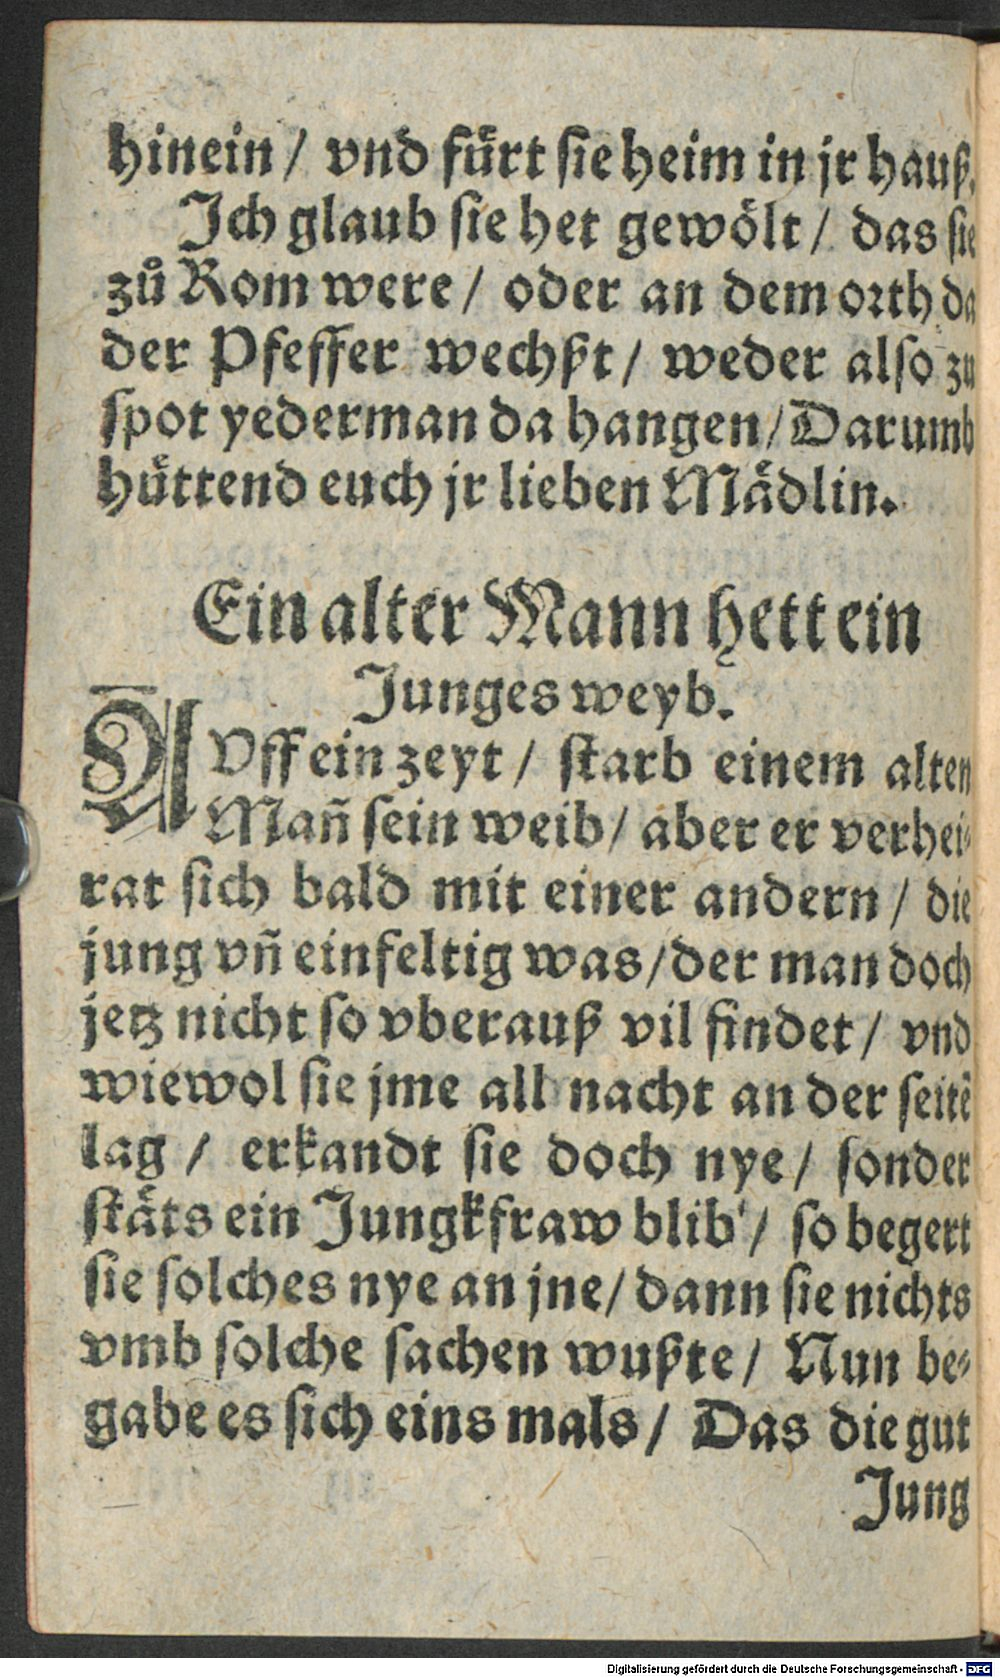 hinein / vnd fuͤrt sie heim in jr hauß.
Ich glaub sie het gewoͤlt / das sie
zů Rom were / oder an dem orth da
der Pfeffer wechßt / weder also zu
spot yederman da hangen / Darumb
huͤttend euch jr lieben Maͤdlin.
Ein alter Mann hett ein
Junges weyb.
AVff ein zeyt / starb einem alten
Mañ sein weib / aber er verhei⸗
rat sich bald mit einer andern / die
jung vñ einfeltig was / der man doch
jetz nicht so vberauß vil findet / vnd
wiewol sie jme all nacht an der seitē
lag / erkandt sie doch nye / sonder
staͤts ein Jungkfraw blib / so begert
sie solches nye an jne / dann sie nichts
vmb solche sachen wußte / Nun be⸗
gabe es sich eins mals / Das die gut
Jung
Digitalisierung gefördert durch die Deutsche Forschungsgemeinschaft - DFG